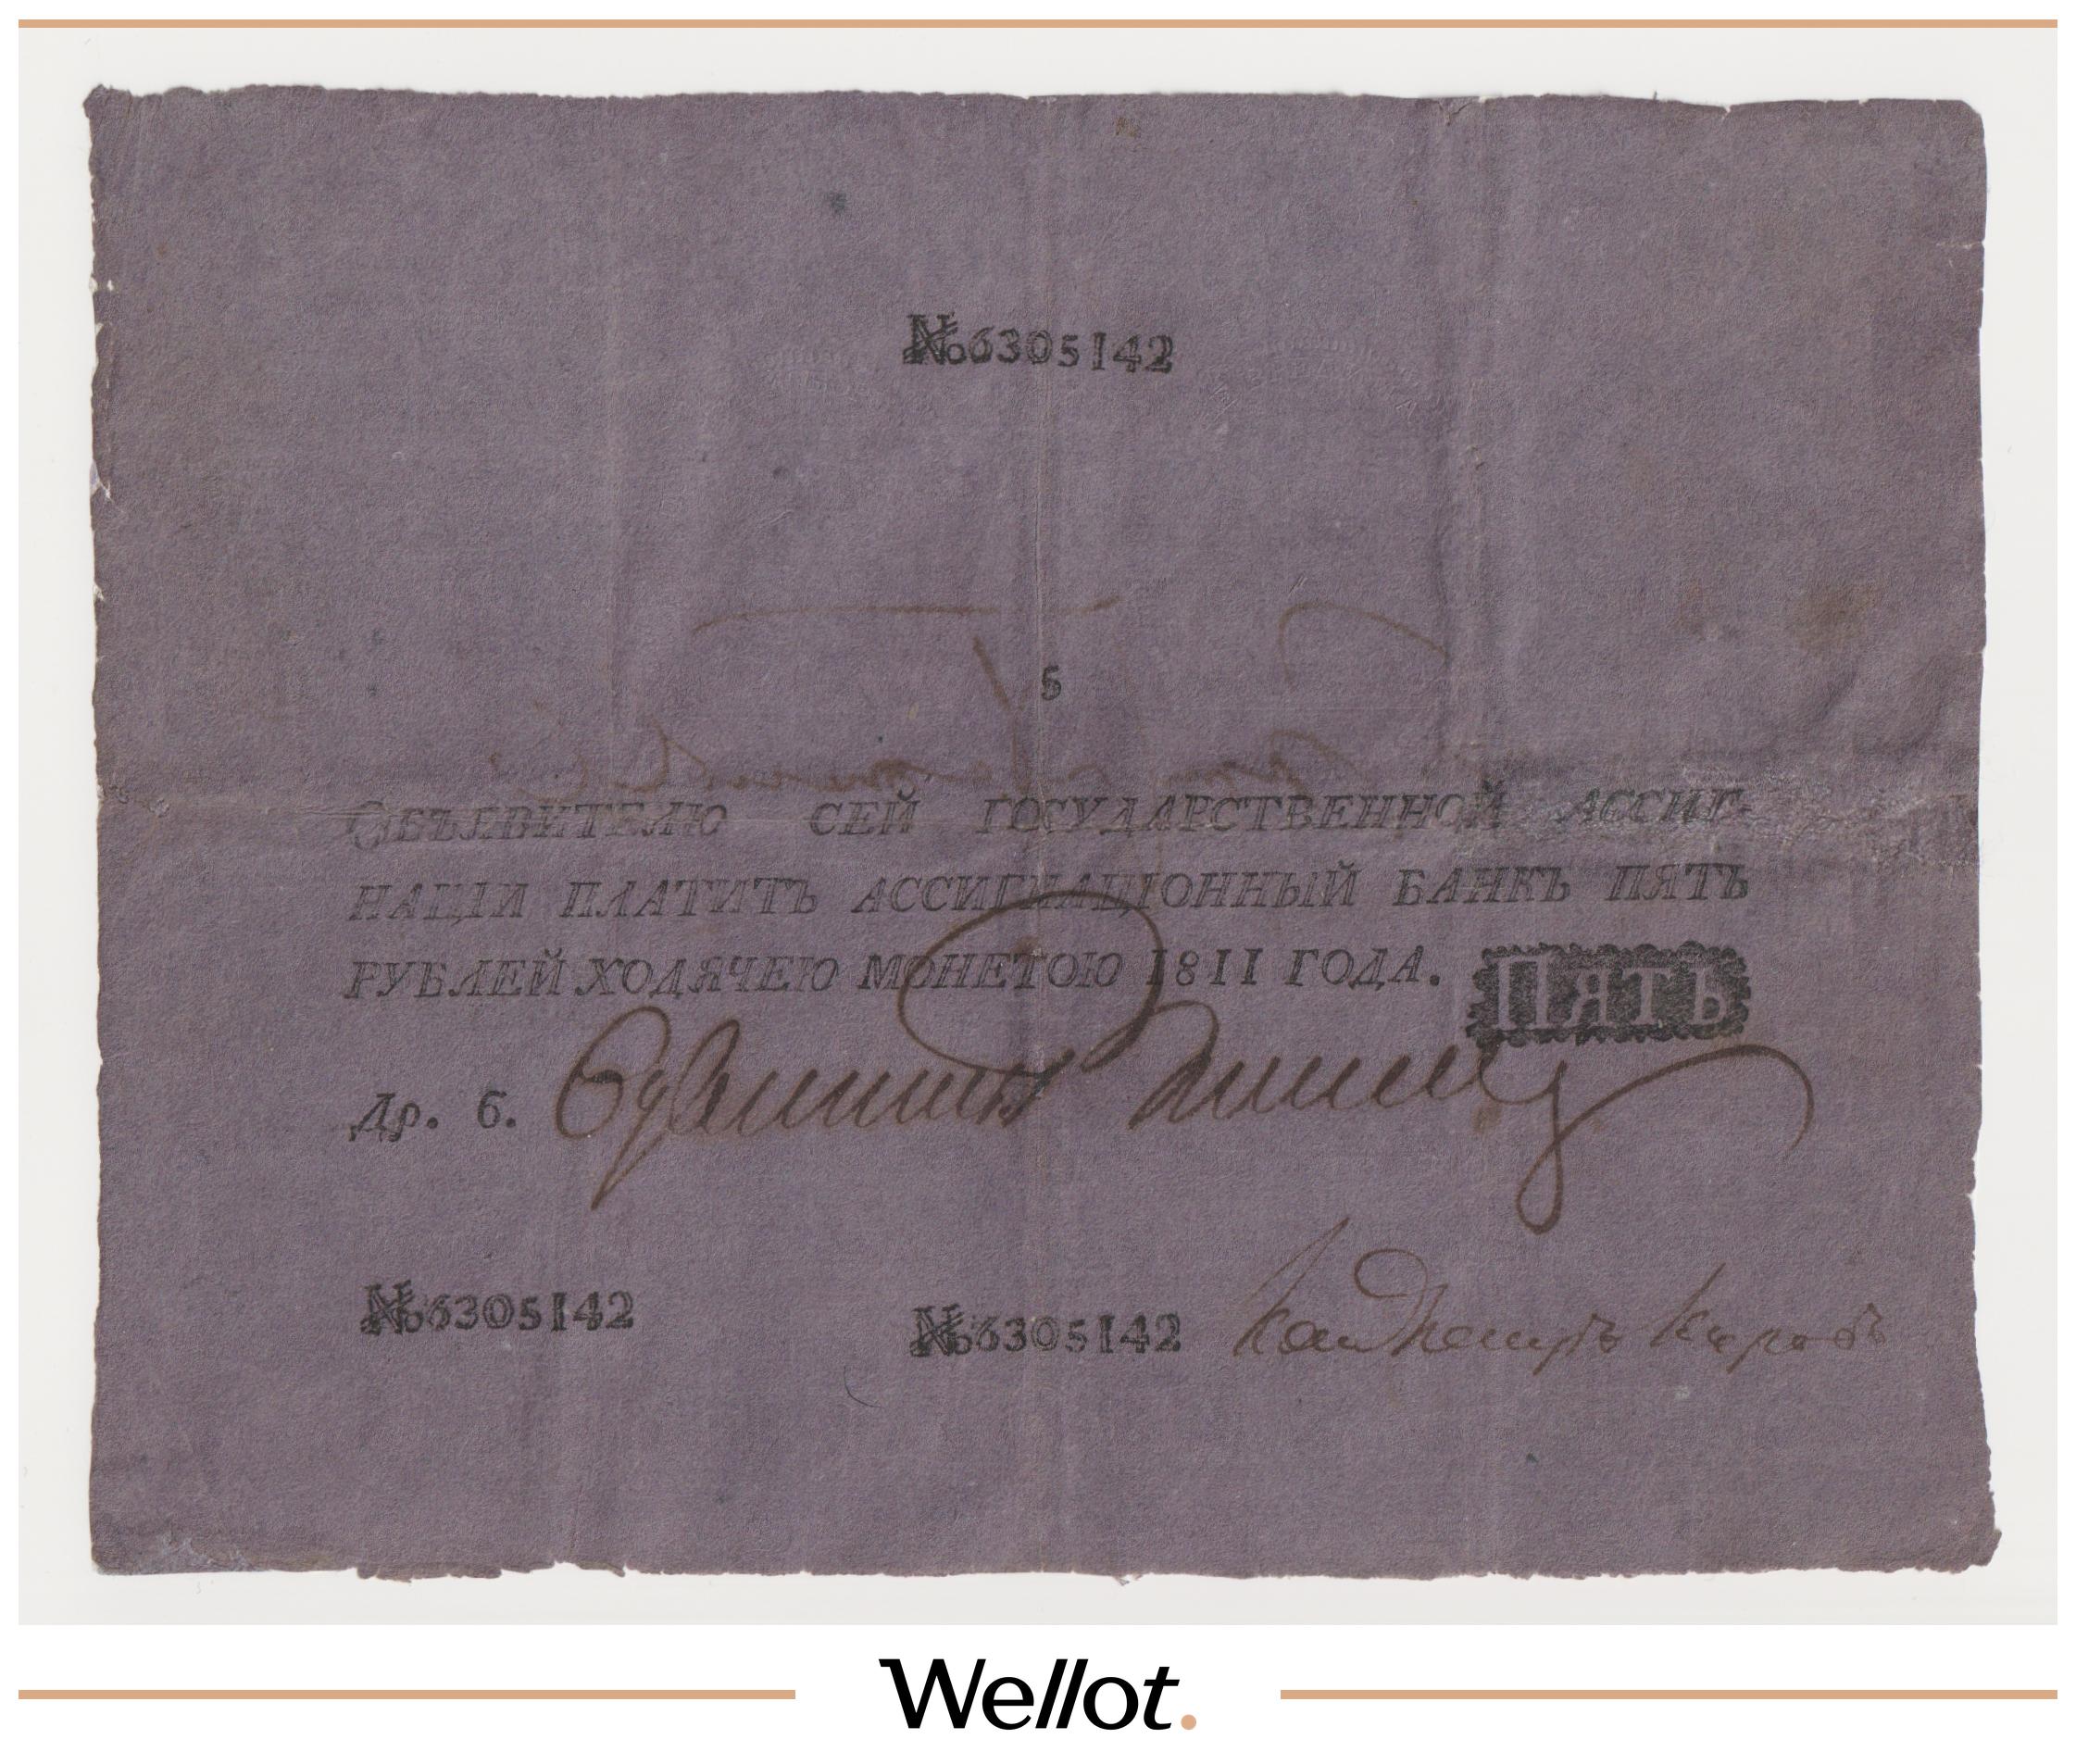 № 6305142
5
ОБЪЯВИТЕЛЮ СЕЙ ГОСУДАРСТВЕННОЙ АССИГ-
НАЦІИ ПЛАТИТЪ АССИГНАЦІОННЫЙ БАНКЪ ПЯТЬ
РУБЛЕЙ ХОДЯЧЕЮ МОНЕТОЮ 1811 ГОДА.
ПЯТЬ
Др. б.
№ 6305142 № 6305142
Wellot.